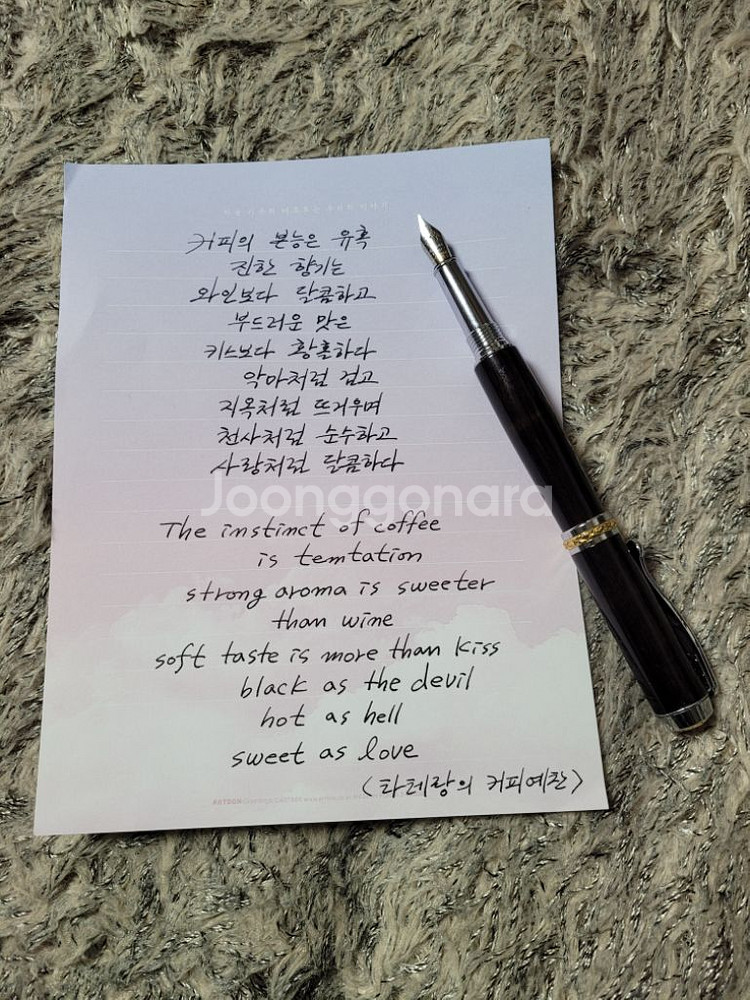 커피의 본능은 유혹
진한 향기는
와인보다 달콤하고
부드러운 맛은
키스보다 황홀하다
악마처럼 검고
지옥처럼 뜨거우며
천사처럼 순수하고
사랑처럼 달콤하다
Joonggonara
The instinct of coffee
is temtation
strong aroma is sweeter
than wine
soft taste is more than kiss
black as the devil
hot as hell
sweet as love
<타테랑의 커피예찬>
ARTBOX